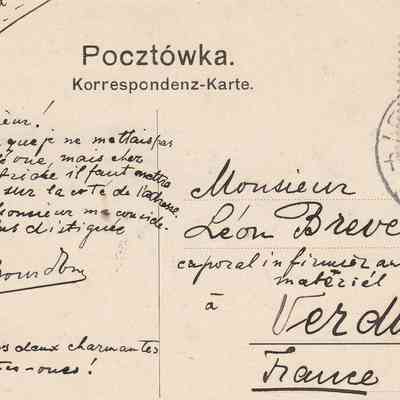 Pocztówka.
Korrespondenz-Karte.
ieur!
que je ne mettais pas
mais chez
il faut mettre
sur la coté de l'adresse,
onsieur ma conside-
distiguée
s deux charmantes
Monsieur
Léon Breve
caporal infirmier au
matériél
à
Verdu
France